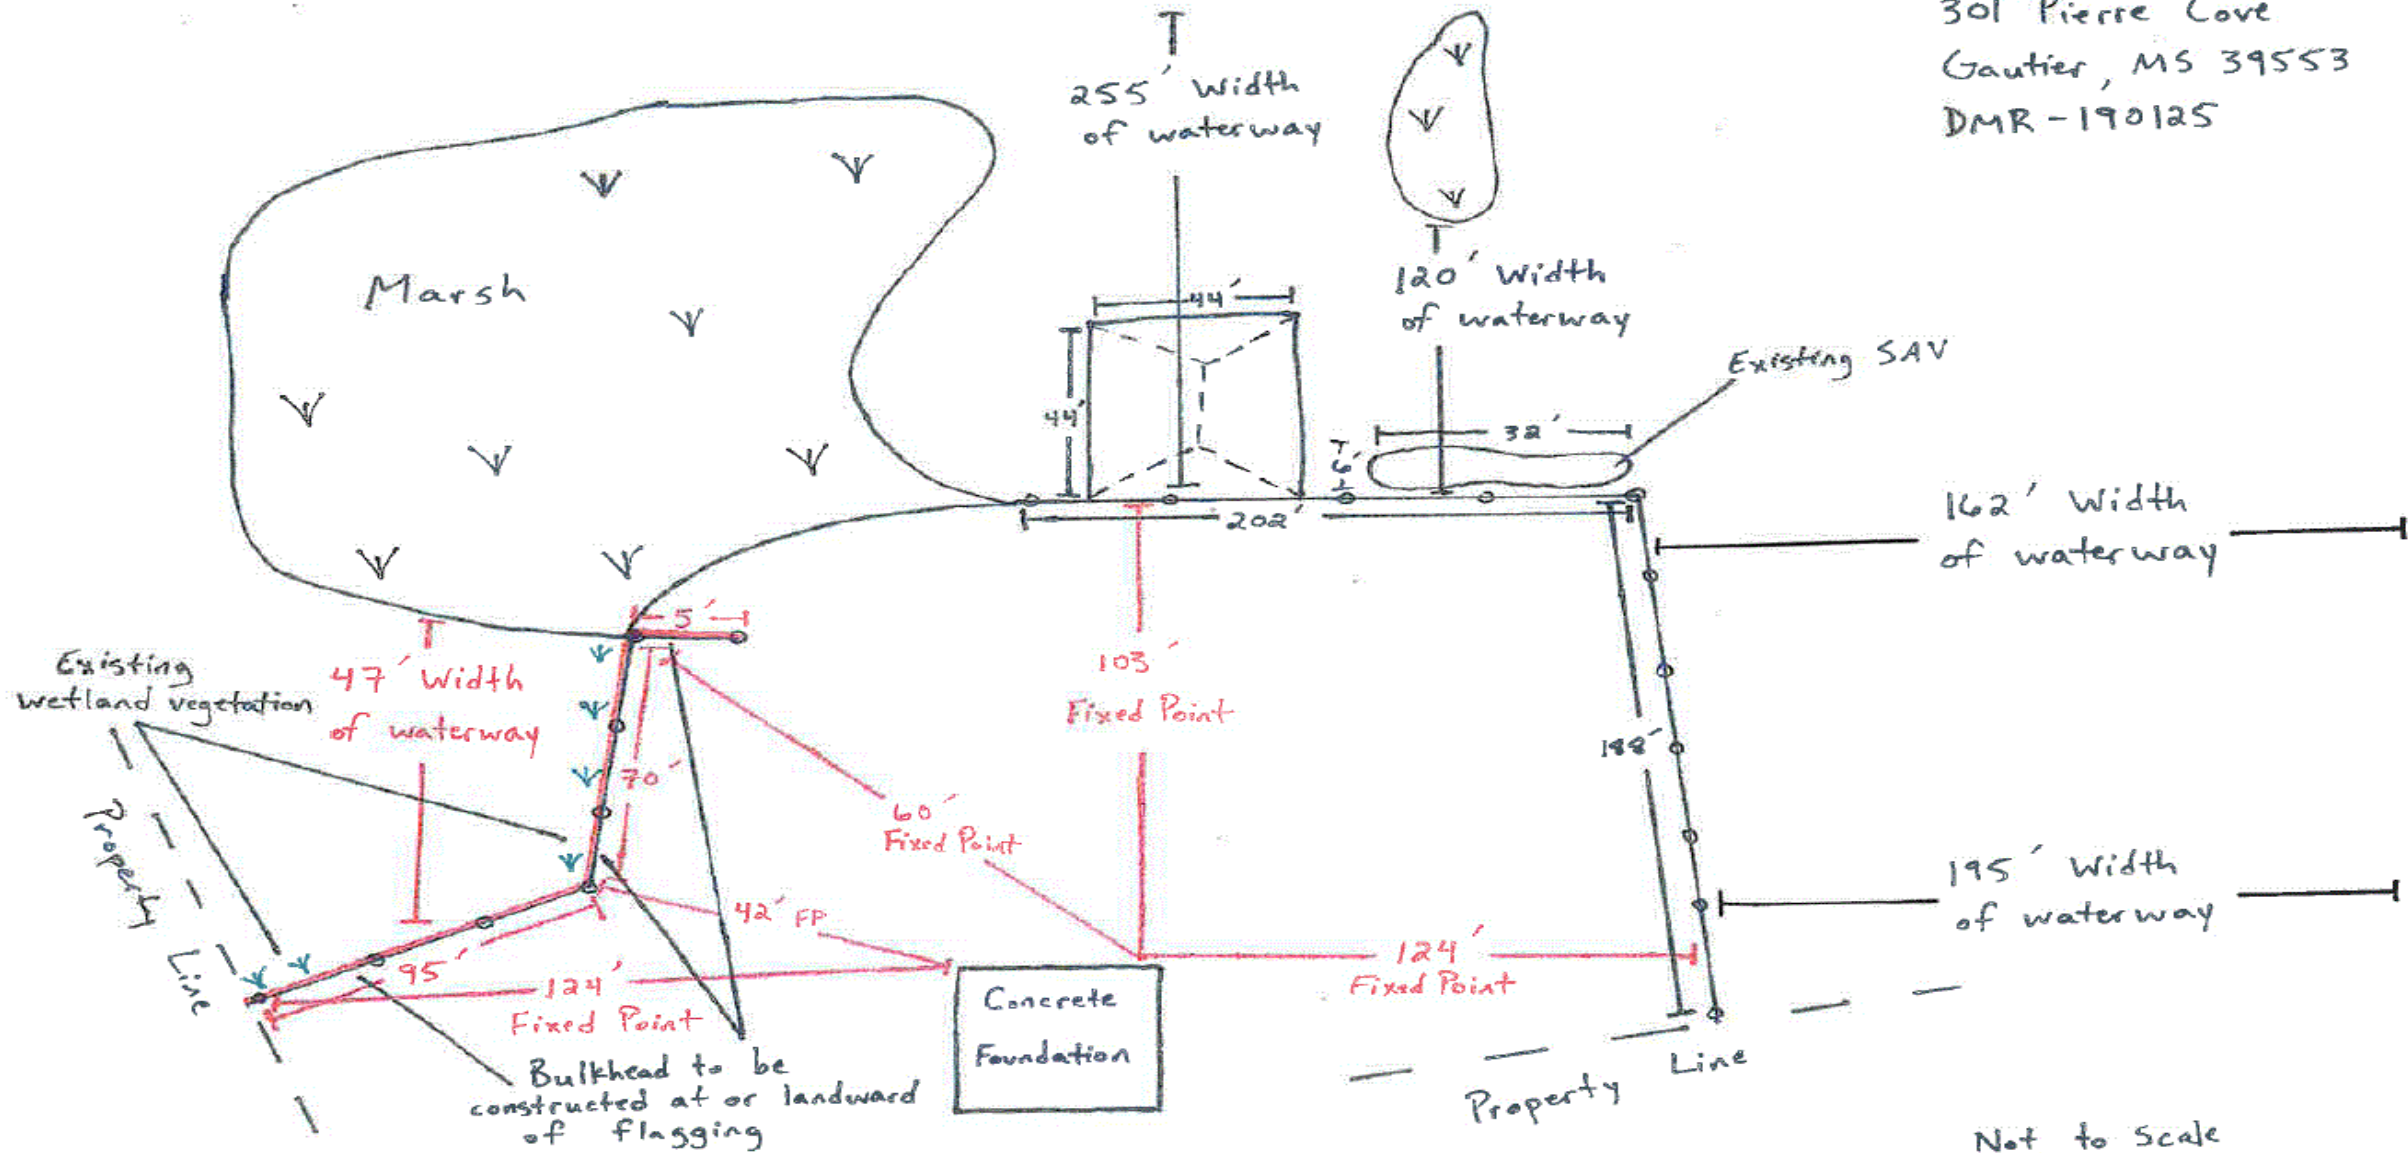 301 Pierre Cove
Gautier, MS 39553
DMR-190125
255' Width
of waterway
Marsh
120' Width
of waterway
44'
44'
Existing SAV
32'
6'
202'
162' Width
of waterway
5'
Existing
wetland vegetation
47' Width
of waterway
103'
Fixed Point
188'
70'
60'
Fixed Point
Property Line
195' Width
of waterway
42' FP
95'
124'
Fixed Point
124'
Fixed Point
Concrete
Foundation
Bulkhead to be
constructed at or landward
of flagging
Property Line
Not to Scale